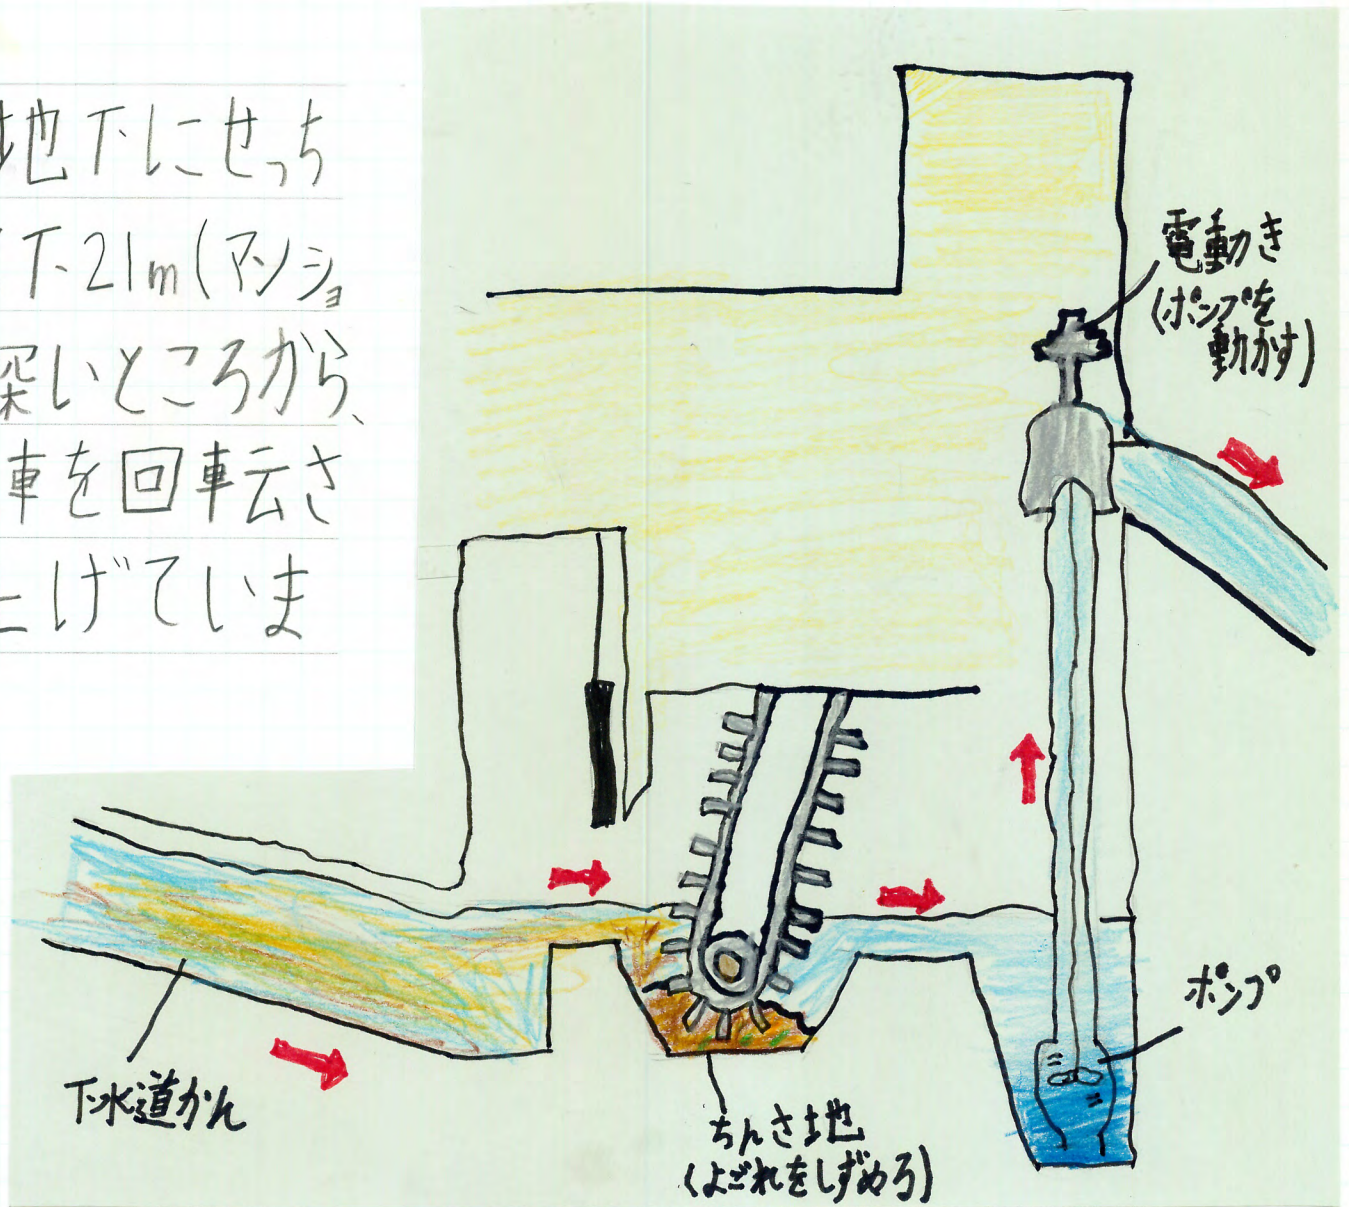 地下にせっち
下21m(マンショ
深いところから、
車を回転さ
上げていま
電動き
(ポンプを
動かす)
ポンプ
下水道かん
ちんさ地
(よごれをしずめる)